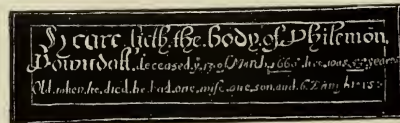 Heare lieth the body of Philemon
Pownoll deceased yͤ 17 of March 166 he was 57 years
Old when he died he had one wife one son and 6